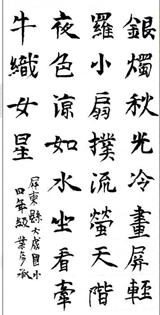 銀燭秋光冷畫屏輕
羅小扇撲流螢天階
夜色涼如水坐看牽
牛織女星
屏東縣大成國小
四年級葉